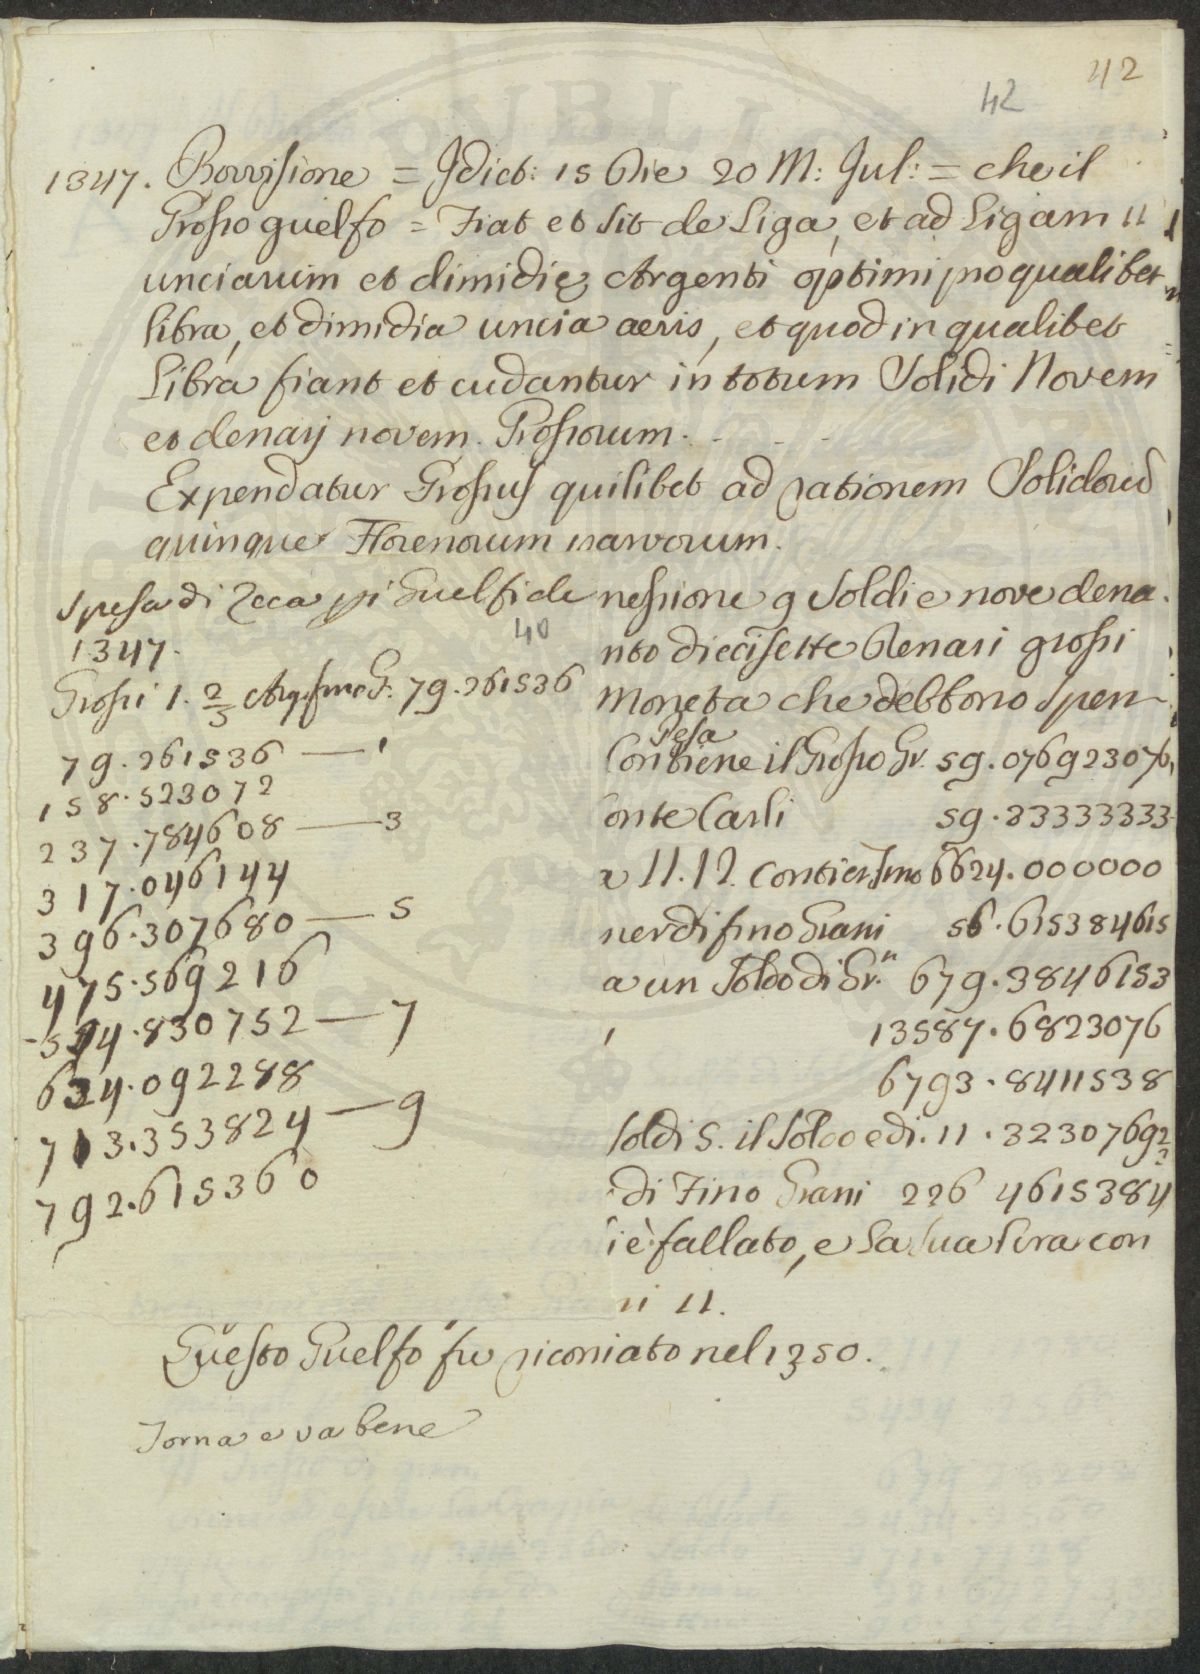 42
42
1347. Provvisione = Idict: 15 Die 20 M: Jul: = che il
Grosso guelfo = Fiat et sit de Liga, et ad Ligam 11
unciarum et dimidię Argenti optimi pro qualibet
libra, et dimidia uncia aeris, et quod in qualibet
Libra fiant et cudantur in totum Solidi Novem
et denarij novem. Grossorum.
Expendatur Grossus quilibet ad rationem Solidorum
quinque Florenorum parvorum.
Spesa di Zecca pi Guelfi de
1347.
40
Grossi 1. 2/3 Arg. fine G. 79.261536
79.261536 — 1
158.523072
237.784608 — 3
317.046144
396.307680 — 5
475.569216
554.830752 — 7
634.092288
713.353824 — 9
792.615360
nessione 9 Soldi e nove dena.
nto diecisette Denari grossi
Moneta che debbono Spen-
Pesa
Contiene il Grosso Gr. 59.076923076
onte Carli 59.33333333
a 11.12. contien fino 6624.000000
ner di fino Grani 56.615384615
a un Soldo di Gr.ⁿ 679.3846153
13587.6823076
6793.8411538
Soldi 5. il Soldo e di. 11.32307692
di Fino Grani 226 4615384
i è fallato, e la sua lira con
ii 11.
Questo Guelfo fu riconiato nel 1350.
Torna e va bene